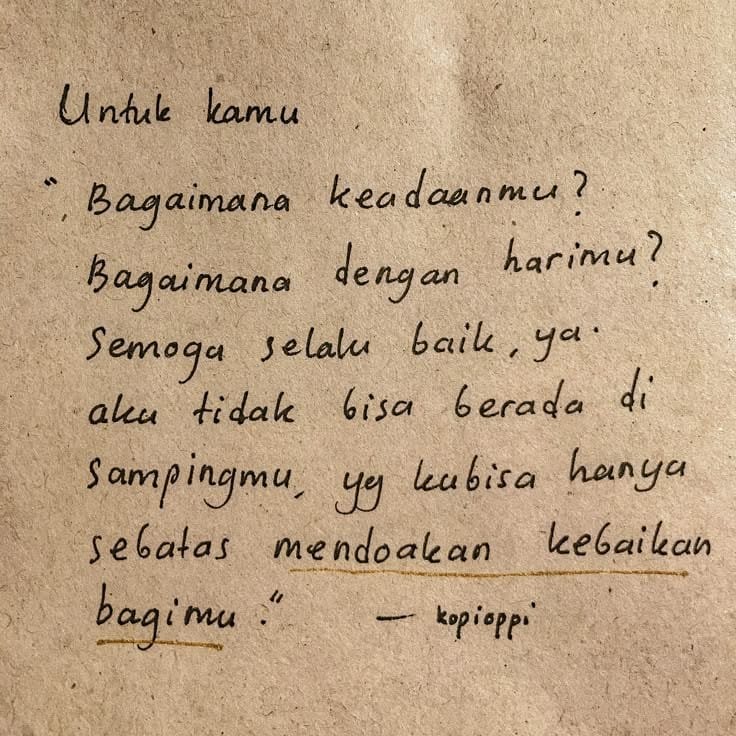 Untuk kamu
". Bagaimana keadaanmu?
Bagaimana dengan harimu?
Semoga selalu baik, ya.
aku tidak bisa berada di
sampingmu, yg kubisa hanya
sebatas mendoakan kebaikan
bagimu." — kopioppi